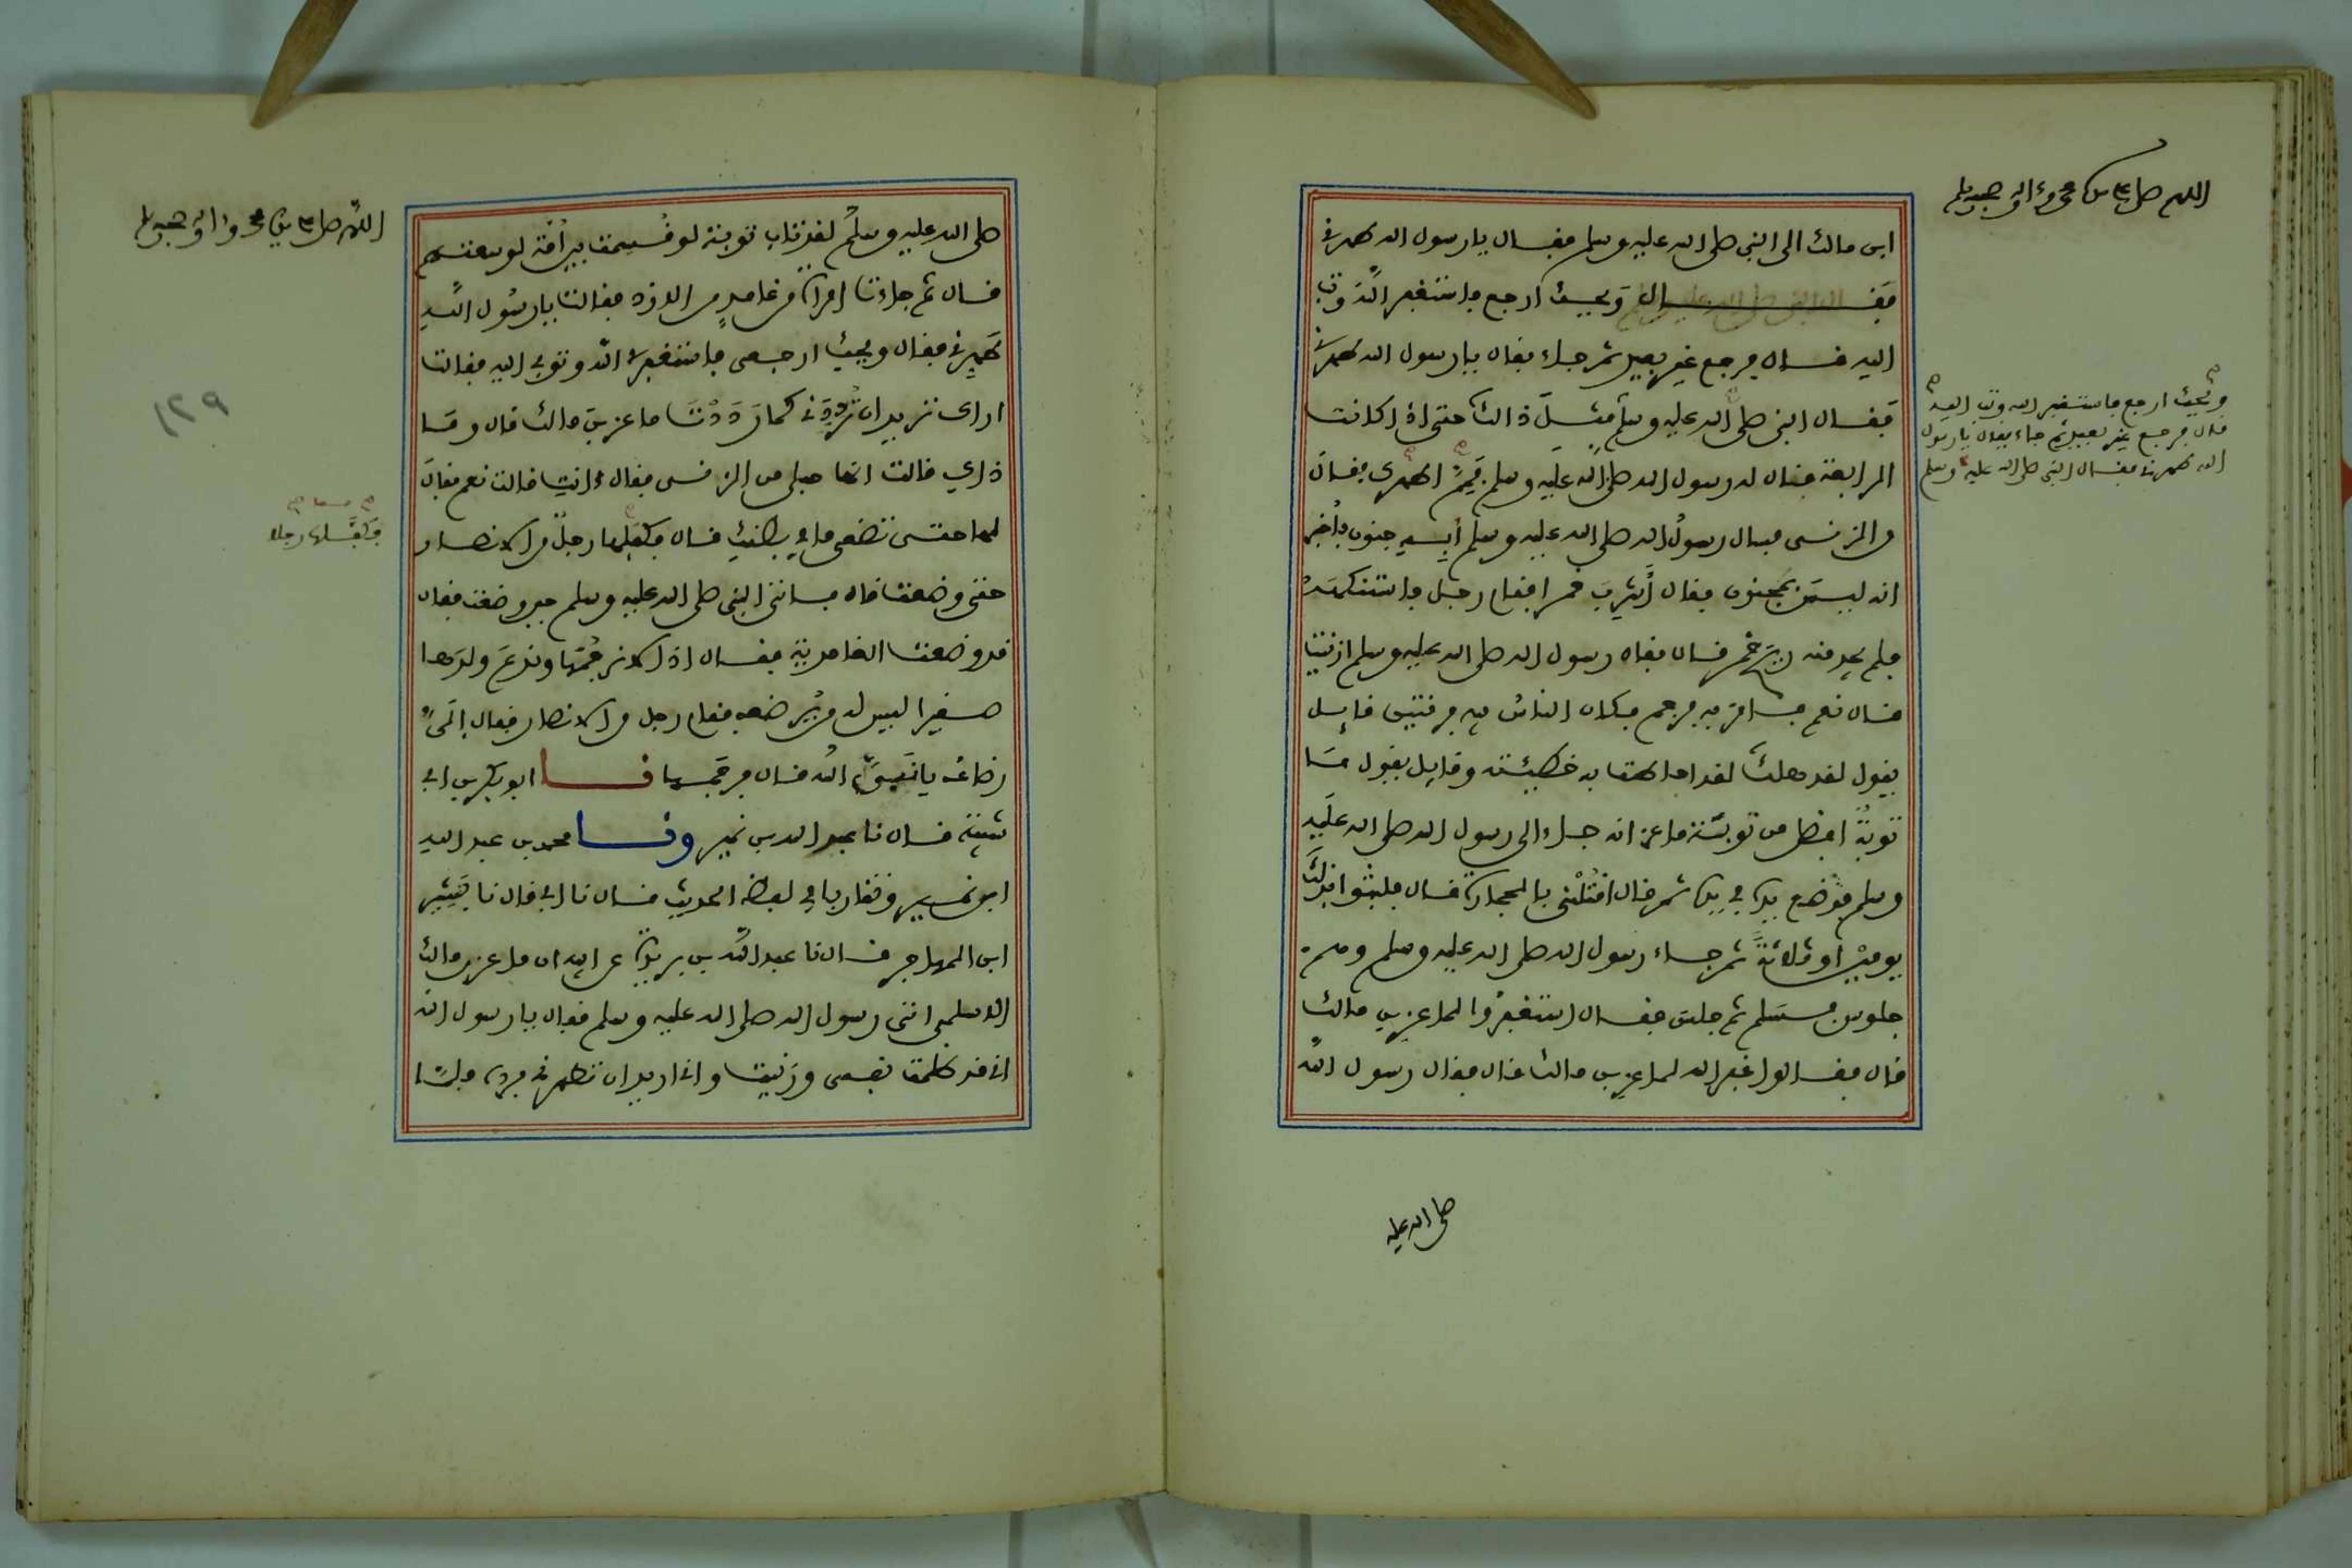 اللهم صل على سيدنا محمد وءاله وصحبه وسلم
ابن مالك الى النبي صلى الله عليه وسلم فقال يا رسول الله طهرني
فقال ويحك ارجع فاستغفر الله وتب
اليه قال فرجع غير بعيد ثم جاء فقال يا رسول الله طهرني
فقال النبي صلى الله عليه وسلم مثل ذالك حتى اذا كانت
الرابعة فقال له رسول الله صلى الله عليه وسلم فيم اطهرك فقال
من الزنى فسال رسول الله صلى الله عليه وسلم أبه جنون فأخبر
انه ليس بمجنون فقال أشرب خمرا فقام رجل فاستنكهه
فلم يجد منه ريح خمر قال فقال رسول الله صلى الله عليه وسلم ازنيت
قال نعم فامر به فرجم فكان الناس فيه فرقتين قايل
يقول لقد هلك لقد احاطت به خطيئته وقايل يقول ما
توبة افضل من توبة ماعز انه جاء الى رسول الله صلى الله عليه
وسلم فوضع يده في يده ثم قال اقتلني بالحجارة قال فلبثوا بذلك
يومين او ثلاثة ثم جاء رسول الله صلى الله عليه وسلم وهم
جلوس فسلم ثم جلس فقال استغفروا لماعز بن مالك
قال فقالوا غفر الله لماعز بن مالك قال فقال رسول الله
ويحك ارجع فاستغفر الله وتب اليه
قال فرجع غير بعيد ثم جاء فقال يا رسول
الله طهرني فقال النبي صلى الله عليه وسلم
صلى الله عليه
اللهم صل على سيدنا محمد وءاله وصحبه وسلم
صلى الله عليه وسلم لقد تاب توبة لو قسمت بين أمة لوسعتهم
قال ثم جاءته امراة من غامد من الازد فقالت يا رسول الله
طهرني فقال ويحك ارجعي فاستغفري الله وتوبي اليه فقالت
اراك تريد ان ترددني كما رددت ماعز بن مالك قال وما
ذاك قالت انها حبلى من الزنى فقال ءانت قالت نعم فقال
لها حتى تضعي ما في بطنك قال فكفلها رجل من الانصار
حتى وضعت قال فاتى النبي صلى الله عليه وسلم حين وضعت فقال
قد وضعت الغامدية فقال اذا لا نرجمها وندع ولدها
صغيرا ليس له من يرضعه فقام رجل من الانصار فقال إلي
رضاعه يا نبيء الله قال فرجمها نا ابو بكر بن ابي
شيبة قال نا عبد الله بن نمير ونا محمد بن عبد الله
ابن نمير وتقاربا في لفظ الحديث قال نا ابي قال نا بشير
ابن المهاجر قال نا عبد الله بن بريدة عن ابيه ان ماعز بن مالك
الاسلمي اتى رسول الله صلى الله عليه وسلم فقال يا رسول الله
اني قد ظلمت نفسي وزنيت واني اريد ان تطهرني فرده فلما
فكفلها رجل
١٢٩